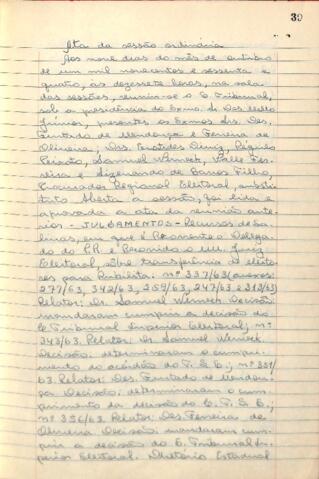 39
Ata da sessão ordinária
Aos nove dias do mês de outubro
de um mil novecentos e sessenta e
quatro, às dezessete horas, na sala
das sessões, reuniu-se o E. Tribunal,
sob a presidência do Exmo. Sr. Des. Mello
Júnior, presentes os Exmos. Srs. Des.
Furtado de Mendonça e Ferreira de
Oliveira, Drs. Euclides Diniz,
Peixão, Samuel Werneck, Valle Fer-
reira e Sizenando de Barros Filho,
Procurador Regional Eleitoral, substi-
tuto. Aberta a sessão, foi lida e
aprovada a ata da reunião ante-
rior - JULGAMENTOS - Recursos de Sa-
linas, em que é Recorrente o Delega-
do do PR e Recorrido o MM. Juiz
Eleitoral, sobre transferência de eleito-
res para Rubelita: nº 337/63 (anexos:
277/63, 342/63, 259/63, 247/63 e 313/63)
Relator: Dr. Samuel Werneck. Decisão:
mandaram cumprir a decisão do
E. Tribunal Superior Eleitoral; nº
343/63. Relator: Dr. Samuel Werneck.
Decisão: determinaram o cumpri-
mento do acórdão do T. S. E.; nº 351/
63. Relator: Des. Furtado de Mendon-
ça. Decisão: determinaram o cum-
primento da decisão do E. T. S. E.;
nº 336/63. Relator: Des. Ferreira de
Oliveira. Decisão: mandaram cum-
prir a decisão do E. Tribunal Su-
perior Eleitoral. Diretório Estadual